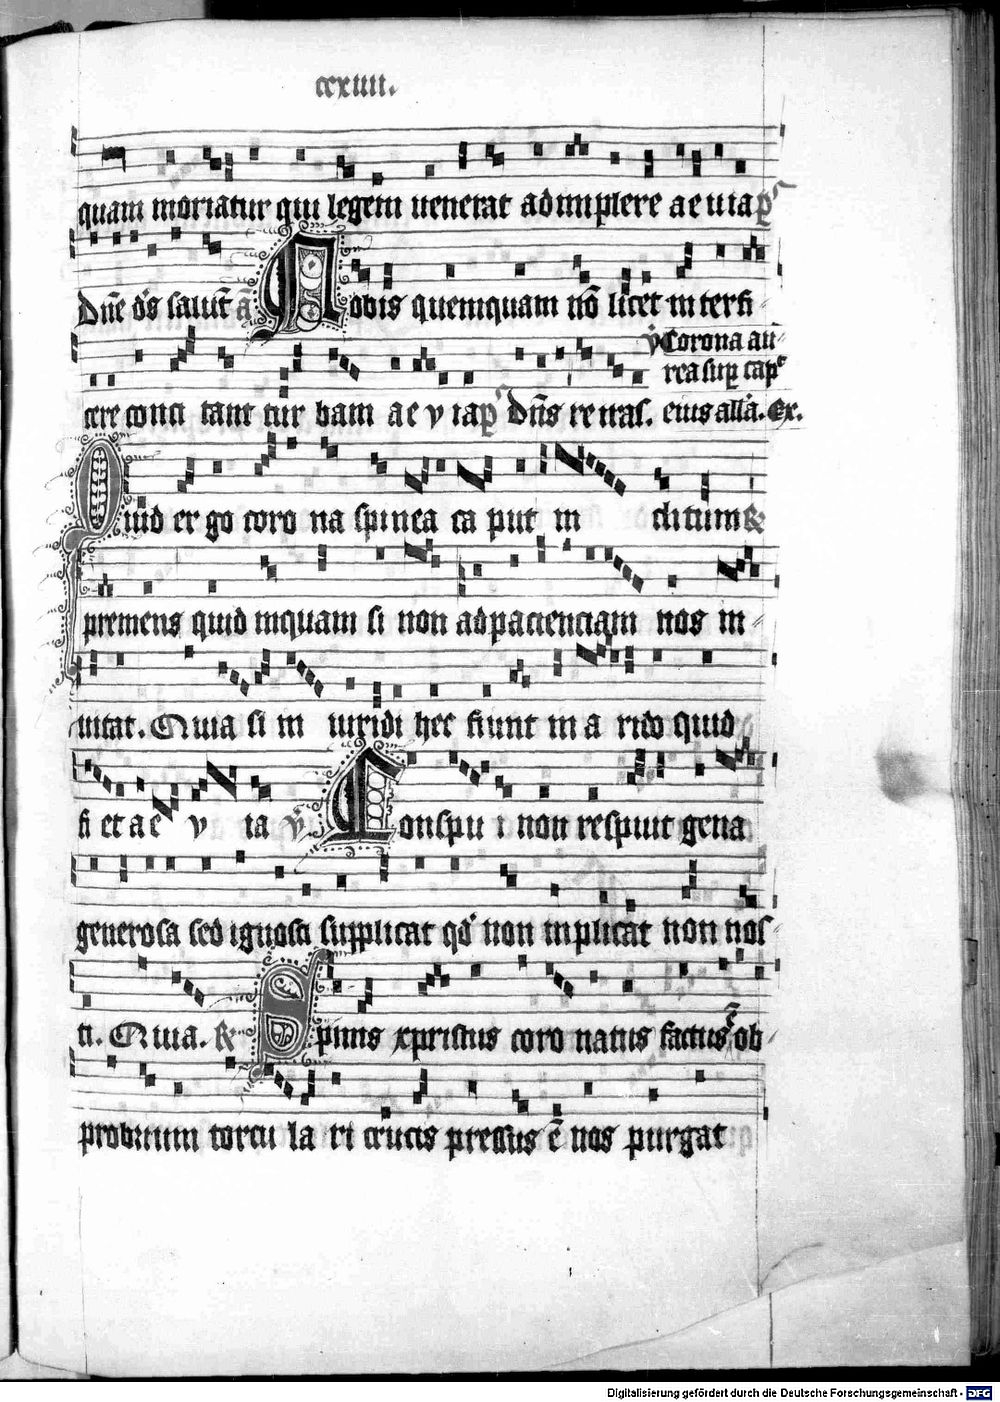 ccxiiii.
quam moriatur qui legem uenerat adimplere ae u ia p̄s
Dn̄e d̄s salut̄ ā Nobis quemquam nō licet interfi-
cere conci tant tur bam ae v ia p̄s Dn̄s re i tas.
v̄ Corona au-
rea sup̄ cap̄
eius all'a. Ex.
Quid er go coro na spinea ca put in cli tum &
premens quid inquam si non ad pacienciam nos in
uitat. Quia si in uiridi hec fiunt in a rido quid
fi et a e v ia v̄. Conspu i non respuit gena
generosa sed ignosci supplicat qd' non inplicat non nos
ti. Quia. R̄ Spinis xpristus coro natus factus ē ob-
probrium torcu la ri crucis pressus ē nos purgat
Digitalisierung gefördert durch die Deutsche Forschungsgemeinschaft - DFG